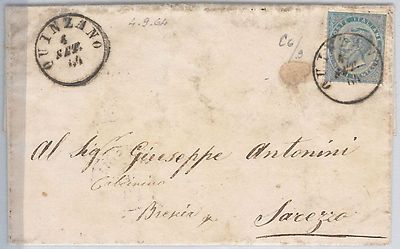 QUINZANO
4
SET.
64
4-9-64
C6/9
Al Sigr Giuseppe Antonini
Brescia
Sarezzo